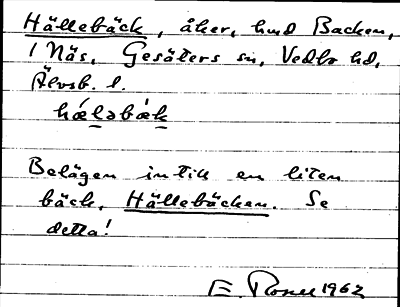 Hällebäck, åker, hmd Backen,
1 Näs, Gesäters sn, Vedbo hd,
Älvsb. l.
hǽləbæ̀k
Belägen intill en liten
bäck, Hällebäcken. Se
detta!
E. Rosell 1962